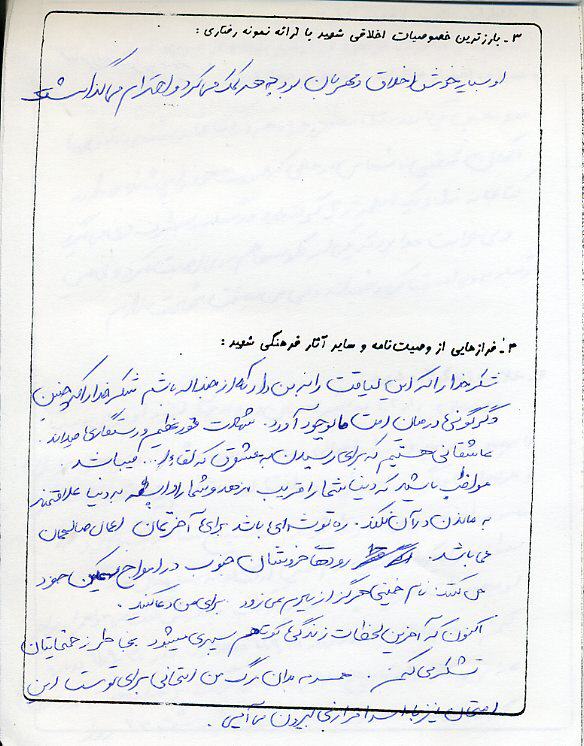 ۳ـ بارزترین خصوصیات اخلاقی شهید با ارائه نمونه رفتاری :
او بسیار خوش اخلاق و مهربان بود به همه کمک می‌کرد و احترام می‌گذاشت
۴ـ فرازهایی از وصیت‌نامه و سایر آثار فرهنگی شهید :
شکر خدا را که این لیاقت را به من داد که از حزب الله باشم شکر خدا را که چنین
دگرگونی‌ها در میان امت ما بوجود آورد . شهادت فوز عظیم و رستگاری میداند .
عاشقانی هستیم که برای رسیدن به معشوق که لقاء ا... میباشد
مواظب باشید که دنیا شما را فریب ندهد و شما را به دنیا علاقمند
به ماندن در آن نکند . ره توشه‌ای باشد برای آخرتمان اعمال صالحمان
می باشد . رودها خروشان خوب در امواج خود
می کنند نام خمینی هرگز از یادم نمی رود . برای من دعا کنید .
اکنون که آخرین لحظات زندگی کوتاهم سپری میشود بخاطر زحماتتان
تشکر می کنم . همسرم بدان مرگ من امتحانی برای توست این
امتحان نیز با سرافرازی بیرون می‌آیی .